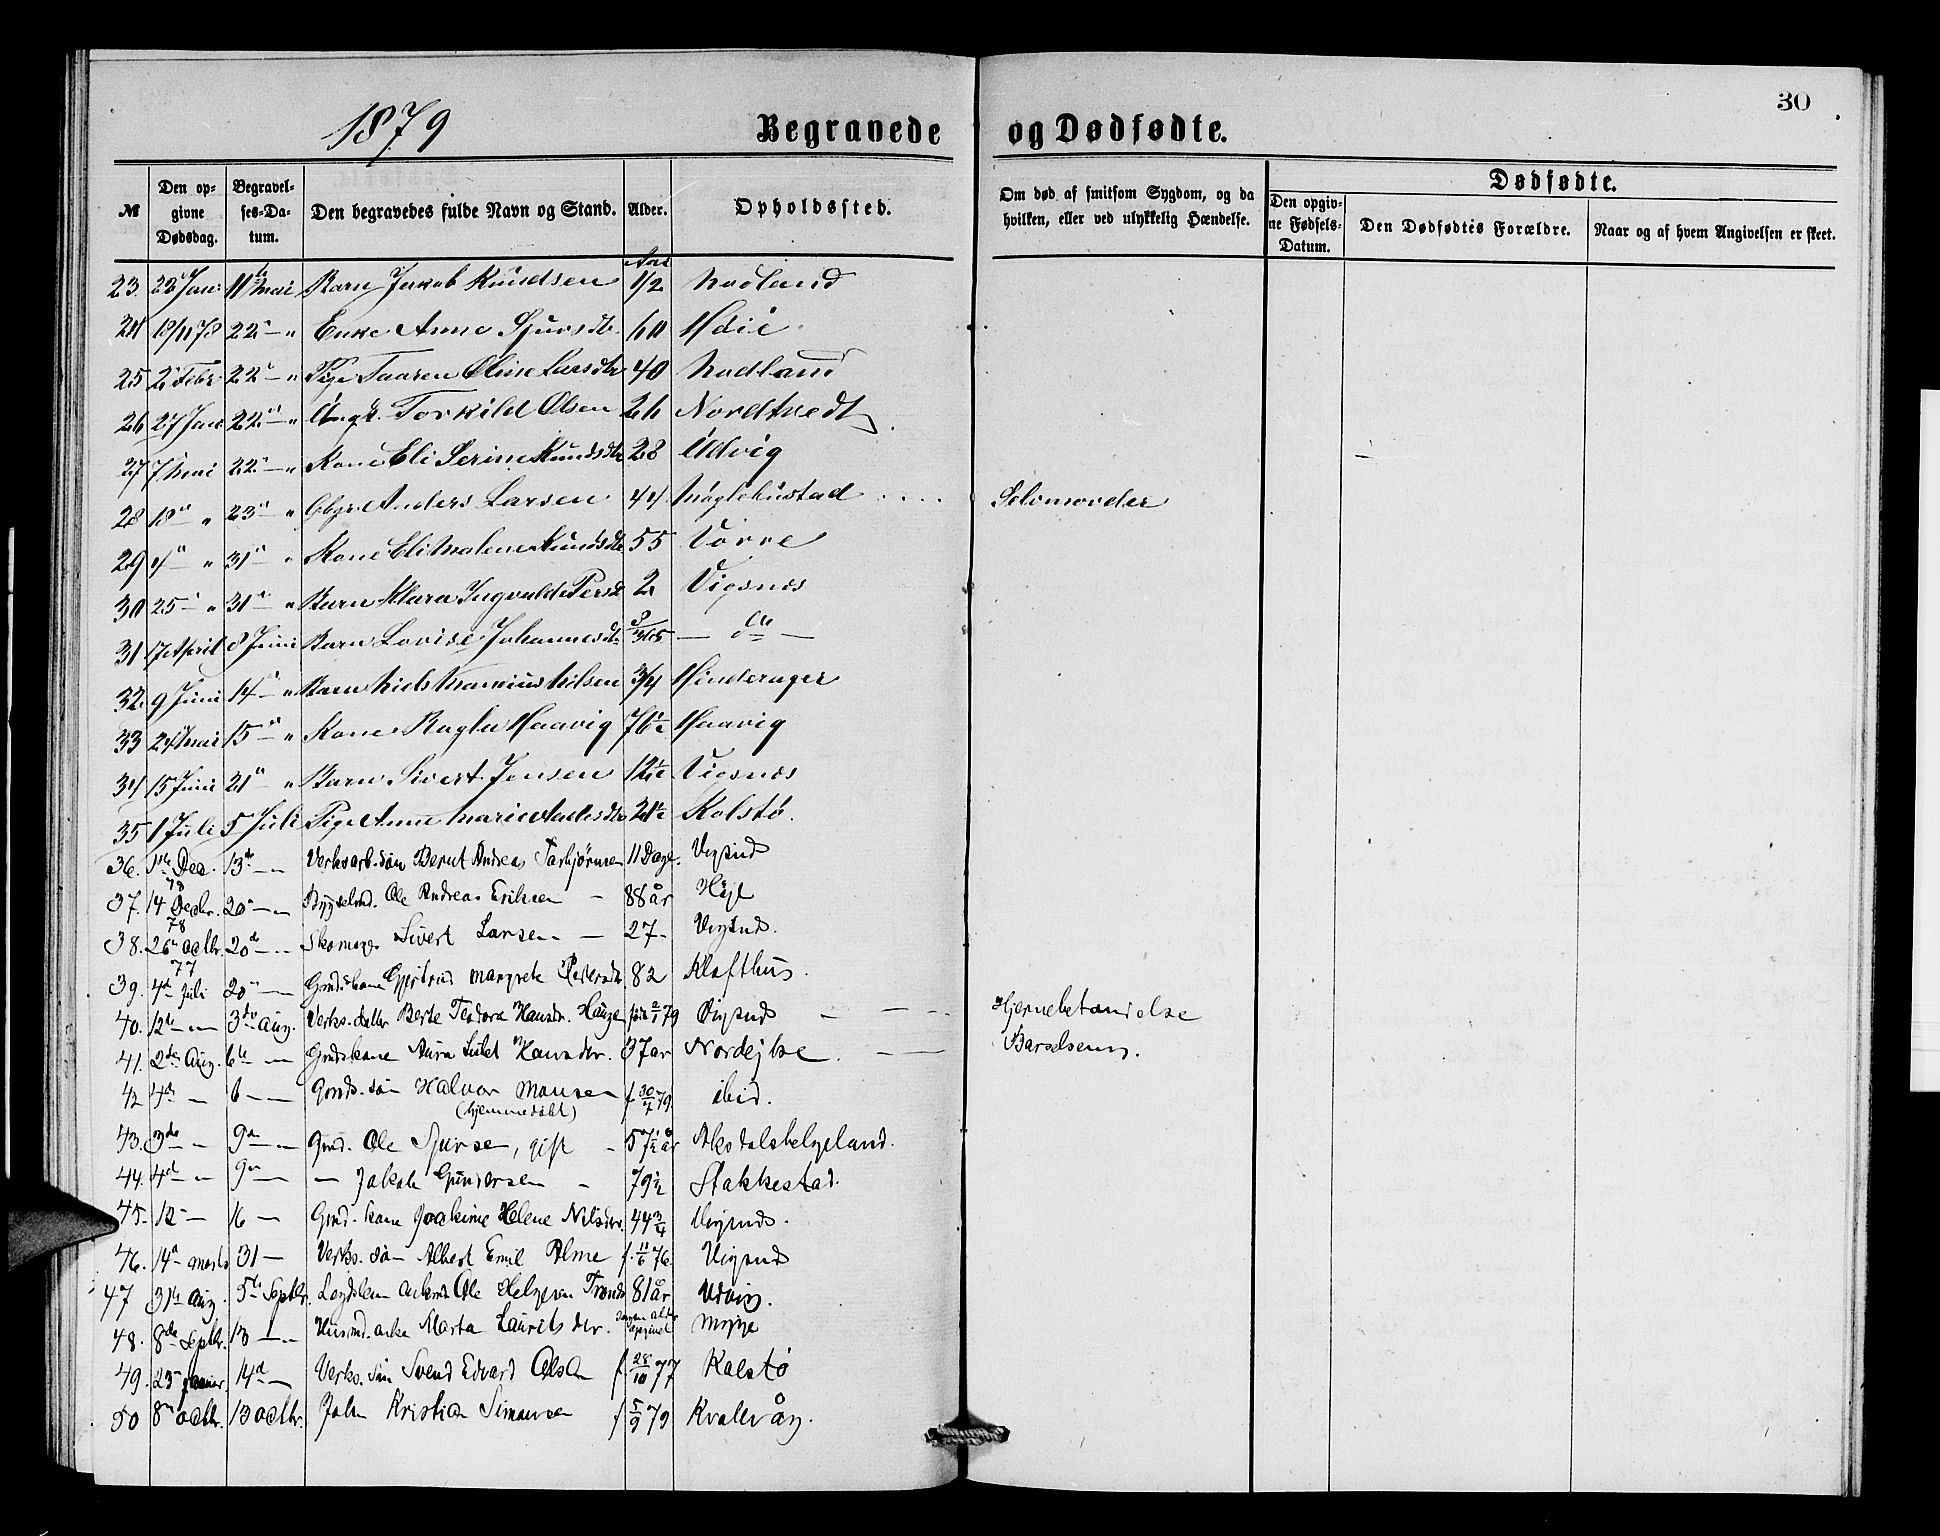 30
1879 Begravede og Dødfødte.
№ Den opgivne Dødsdag. Begravelses-Datum. Den begravedes fulde Navn og Stand. Alder. Opholdssted. Om død af smitsom Sygdom, og da hvilken, eller ved ulykkelig Hændelse. Dødfødte. Den opgivne Fødsels-Datum. Den Dødfødtes Forældre. Naar og af hvem Angivelsen er skeet.
23. 22 Jan: 11 Mai Barn Jakob Knudsen 1/2
24 22 " Enke Anne Sjursdtr. 60
25 2 Febr 22 " Pige Taaren Oline Larsdtr 40
26 27 Jan 22 " Ungk. Torkild Olsen 26 Nordtvedt
27 7 Mai 22 " Kone Eli Serine Knudsdtr 28 Udvig
28 18 " 23 " Anders Larsen 44 Selvmorder
29 4 " 31 " Kone Eli Malene Knudsdtr 55 Vorre
30 25 " 31 " Barn Klara Ingvalda Persd 2 Vigsnæs
31 17 April 8 Juni Barn Lovise Johannesdtr /365 — do —
32. 9 Juni 14 " Barn Niels Marius Nilsen 3/4 Hinderager
33 24 Mai 15 " Kone Ragla Haavig 76 1/2 Haavig
34 15 Juni 21 " Barn Sivert Jensen 12 1/2 Vigsnæs
35 1 Juli 5 Juli Pige Anne Marie 21 1/2 Kolstø.
36. Dec. 78 13 — Verksarb. søn Bernt Andreas Torbjørnsen 11 Dage. Vigsnæs
37. 14 Decbr. 78 20 — Ole Andreas Eriksen — 88 år
38. 26 octbr. 77 20 — Skomager Sivert Larsen — 27 - Vigsnæs.
39. 4 Juli 20 — Gjertrud Margrete Pedersdtr 82 Klofthus.
40. 12 — 3 Aug. Verks. datter Berte Teodora Hansdr. Hauge født 2/1 79 Vigsnæs — Hjernebetændelse
41. 2 Aug. 6 — Gmdskone Anna 37 år Nordeike. — Barselseng.
42 4 — 6 — Gmds. søn Halvor Monsen (hjemmedøbt) f 30/7 79 ibid.
43. 3 — 9 — Gmd. Ole Sjursen, gift - 57 1/2 år Aksdalshelgeland.
44. 4 — 9 — — Jakob Gundersen - 79 1/2 Stakkestad.
45. 12 — 16 — Gmd. kone Joakime Helene Nilsdtr. 44 3/4 Vigsnæs.
46. 14 marts 31 — Verks. søn Albert Emil Alme f. 11/6 76. Vigsnæs
47 31 Aug. 5 Septbr. Ole Helgesen 81 år Udvig.
48. 8 Septbr. 13 — Husmd. enke Marta Lauritsdtr. Ingen alder opgivet
49. 23 Januar. 14 — Verks. søn Svend Edvard Olsen f. 28/10 77 Kolstø
50 8 octbr. 13 octbr. John Kristian Simonsen f 5/9 79 Kvalevåg.